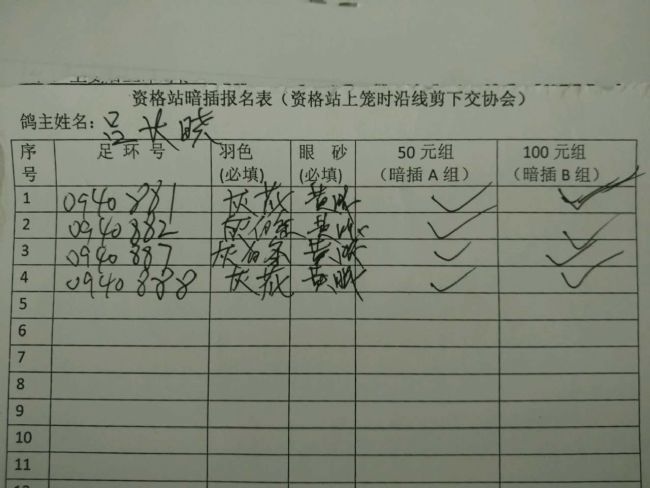 资格站暗插报名表（资格站上笼时沿线剪下交协会）
鸽主姓名：吕长晓
序号 足环号 羽色(必填) 眼砂(必填) 50元组(暗插A组) 100元组(暗插B组)
1 0940881 灰 黄眼 ✓ ✓
2 0940882 灰白条 黄眼 ✓ ✓
3 0940887 灰白条 黄眼 ✓ ✓
4 0940888 灰 黄眼 ✓ ✓
5
6
7
8
9
10
11